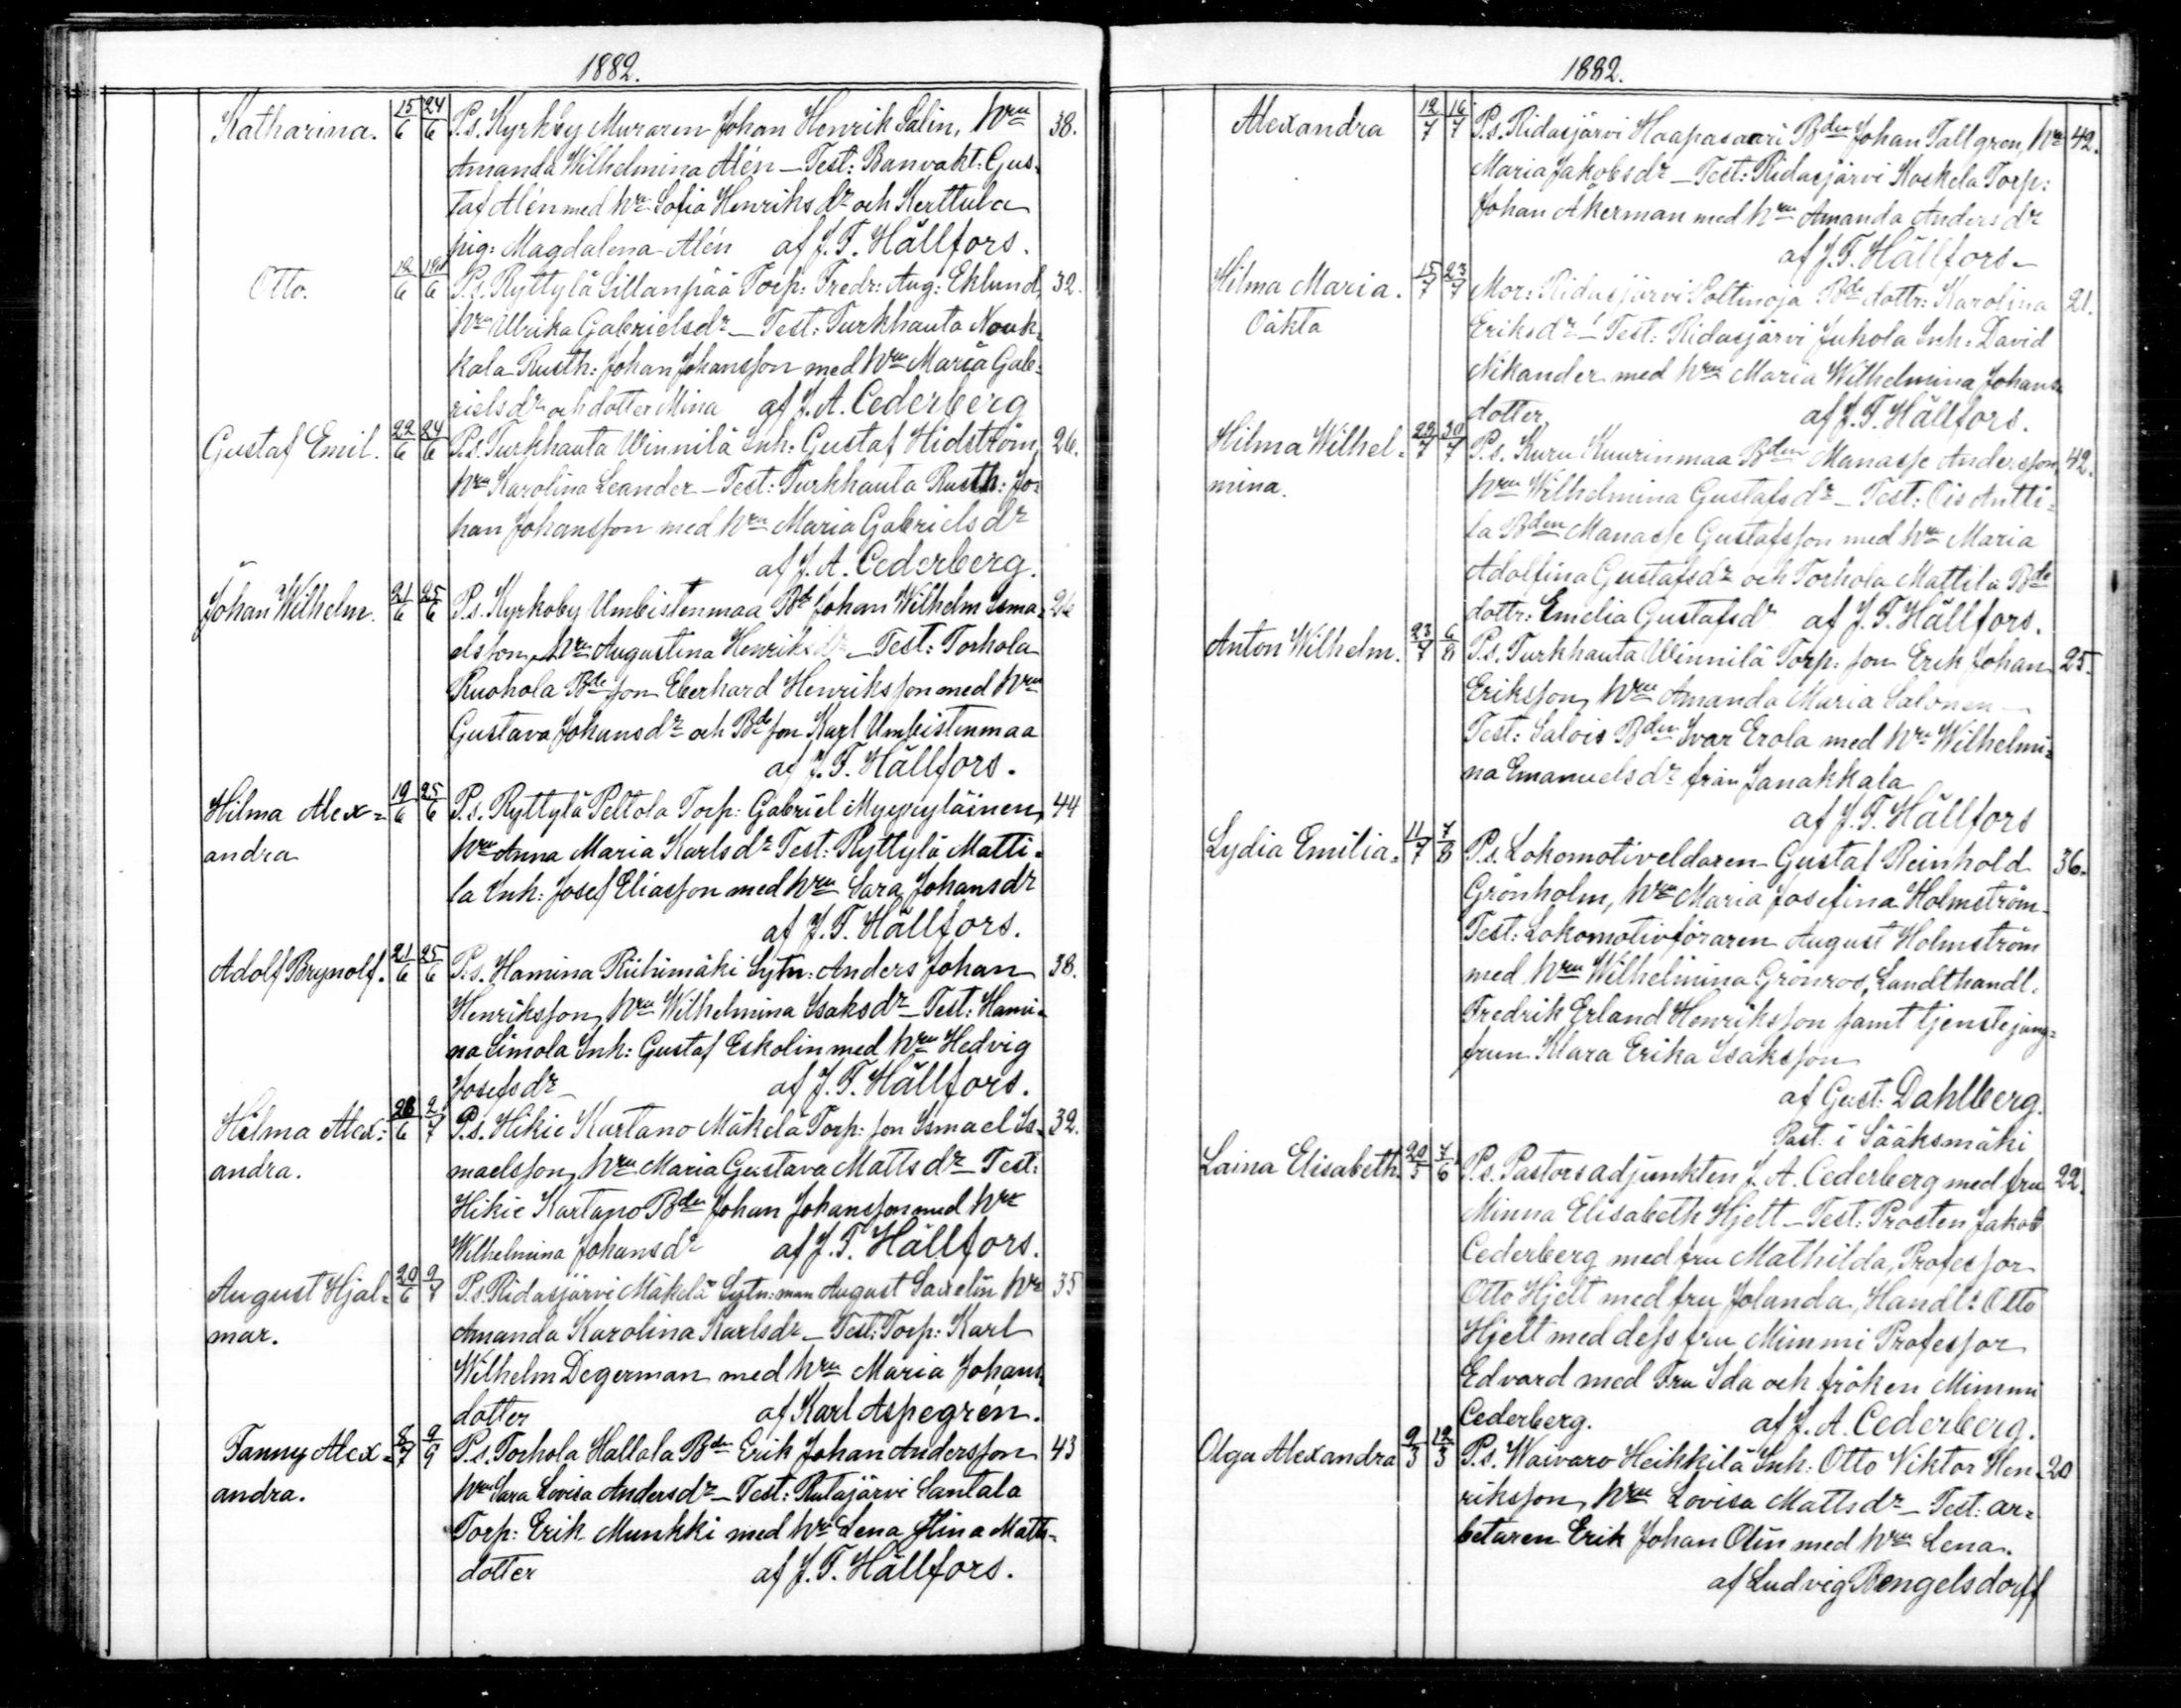 1882.
Katharina. 15/6 24/6 P.s. Kyrkby Muraren Johan Henrik Salin, hru 38.
Amanda Wilhelmina Alén – Test: Banvakt: Gus-
taf Alén med hru Sofia Henriksdr och Kerttula
pig: Magdalena Alén af J. F. Hällfors.
Otto. 12/6 P.s. Ryttylä Sillanpää Torp: Fredr: Aug: Eklund, 32.
hru Ulrika Gabrielsdr – Test: Turkhauta Nouk-
kala Rusth: Johan Johansson med hru Maria Gab-
rielsdr och dotter Mina af J. A. Cederberg
Gustaf Emil. 22/6 24/6 P.s. Turkhauta Winnilä Inh: Gustaf Hidström, 26.
hru Karolina Leander – Test: Turkhauta Rusth: Jo-
han Johansson med hru Maria Gabrielsdr
af J. A. Cederberg.
Johan Wilhelm. 21/6 25/6 P.s. Kyrkoby Umbistenmaa Bde Johan Wilhelm Isma- 26
elsson, hru Augustina Henriksdr – Test: Torhola
Ruohola Bde son Eberhard Henriksson med hru
Gustava Johansdr och Bde son Karl Umbistenmaa
af J. F. Hällfors.
Hilma Alex= 19/6 25/6 P.s. Ryttylä Peltola Torp: Gabriel Myyryläinen, 44
andra hru Anna Maria Karlsdr Test: Ryttylä Matti-
la Inh: Josef Eliasson med hru Sara Johansdr
af J. F. Hällfors.
Adolf Brynolf. 21/6 25/6 P.s. Hamina Riihimäki Sytn: Anders Johan 38.
Henriksson, hru Wilhelmina Isaksdr – Test: Hami-
na Simola Inh: Gustaf Eskolin med hru Hedvig
Josefsdr – af J. F. Hällfors.
Hilma Alex= 28/6 2/7 P.s. Hikie Kartano Mäkelä Torp: son Ismael Is- 32.
andra. maelsson, hru Maria Gustava Mattsdr – Test:
Hikie Kartano Bden Johan Johansson med hru
Wilhelmina Johansdr af J. F. Hällfors.
August Hjal= 20/6 9/7 P.s. Ridasjärvi Mäkelä Sytn:man August Saxelin hru 35
mar. Amanda Karolina Karlsdr – Test: Torp: Karl
Wilhelm Degerman med hru Maria Johans
dotter af Karl Aspegrén.
Fanny Alex= 8/7 9/9 P.s. Torhola Hallala Bden Erik Johan Andersson 43
andra. hru Sara Lovisa Andersdr – Test: Rutajärvi Santala
Torp: Erik Munkki med hru Lena Stina Matts-
dotter af J. F. Hällfors.
1882.
Alexandra 12/7 16/7 P.s. Ridasjärvi Haapasaari Bden Johan Tallgren, hru 42.
Maria Jakobsdr – Test: Ridasjärvi Koskela Torp:
Johan Åkerman med hru Amanda Andersdr
af J. F. Hällfors –
Hilma Maria. 15/7 23/7 Mor: Ridasjärvi Soltinoja Bde dottr: Karolina 21.
Oäkta Eriksdr – Test: Ridasjärvi Juhola Inh: David
Nikander med hru Maria Wilhelmina Johans-
dotter af J. F. Hällfors.
Hilma Wilhel= 22/7 30/7 P.s. Kuru Kuurinmaa Bden Manasse Andersson, 42.
mina. hru Wilhelmina Gustafsdr – Test: Ois Antti-
la Bden Manasse Gustafsson med hru Maria
Adolfina Gustafsdr och Torhola Mattila Bde
dottr: Emelia Gustafsdr af J. F. Hällfors.
Anton Wilhelm. 23/7 6/8 P.s. Turkhauta Winnilä Torp: son Erik Johan 25.
Eriksson, hru Amanda Maria Salonen –
Test: Salois Bden Ivar Erola med hru Wilhelmi-
na Emanuelsdr från Janakkala
af J. F. Hällfors
Lydia Emilia. 11/7 7/8 P.s. Lokomotiveldaren Gustaf Reinhold 36.
Grönholm, hru Maria Josefina Holmström –
Test: Lokomotivföraren August Holmström
med hru Wilhelmina Grönroos, Landthandl.
Fredrik Erland Henriksson samt tjenstejung-
frun Klara Erika Isaksson
af Gust: Dahlberg.
Past: i Sääksmäki
Laina Elisabeth. 20/5 7/6 P.s. Pastorsadjunkten J. A. Cederberg med fru 22.
Minna Elisabeth Hjelt – Test: Prosten Jakob
Cederberg med fru Mathilda, Professor
Otto Hjelt med fru Jolanda, Handl: Otto
Hjelt med dess fru Mimmi Professor
Edvard med Fru Ida och fröken Mimmi
Cederberg. af J. A. Cederberg.
Olga Alexandra 9/3 12/3 P.s. Waivaro Heikkilä Inh: Otto Viktor Hen- 20
riksson, hru Lovisa Mattsdr – Test: ar-
betaren Erik Johan Olin med hru Lena.
af Ludvig Bengelsdorff